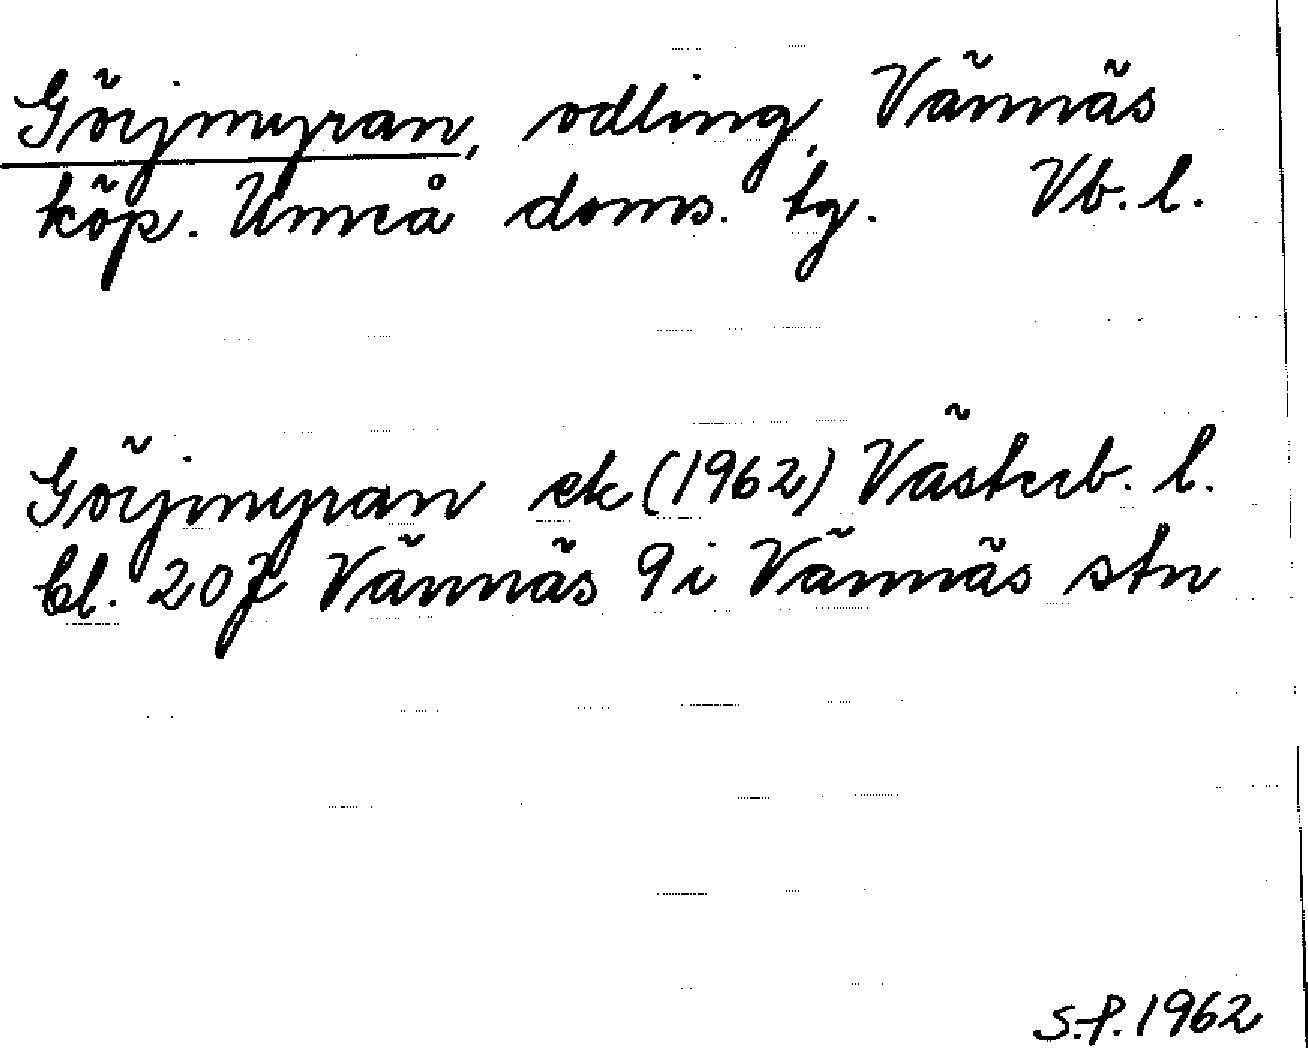 Görjmyran, odling, Vännäs
köp. Umeå doms. tg. Vb. l.
Görjmyran ek (1962) Västerb. l.
bl. 20J Vännäs 9i Vännäs stn
S.P. 1962